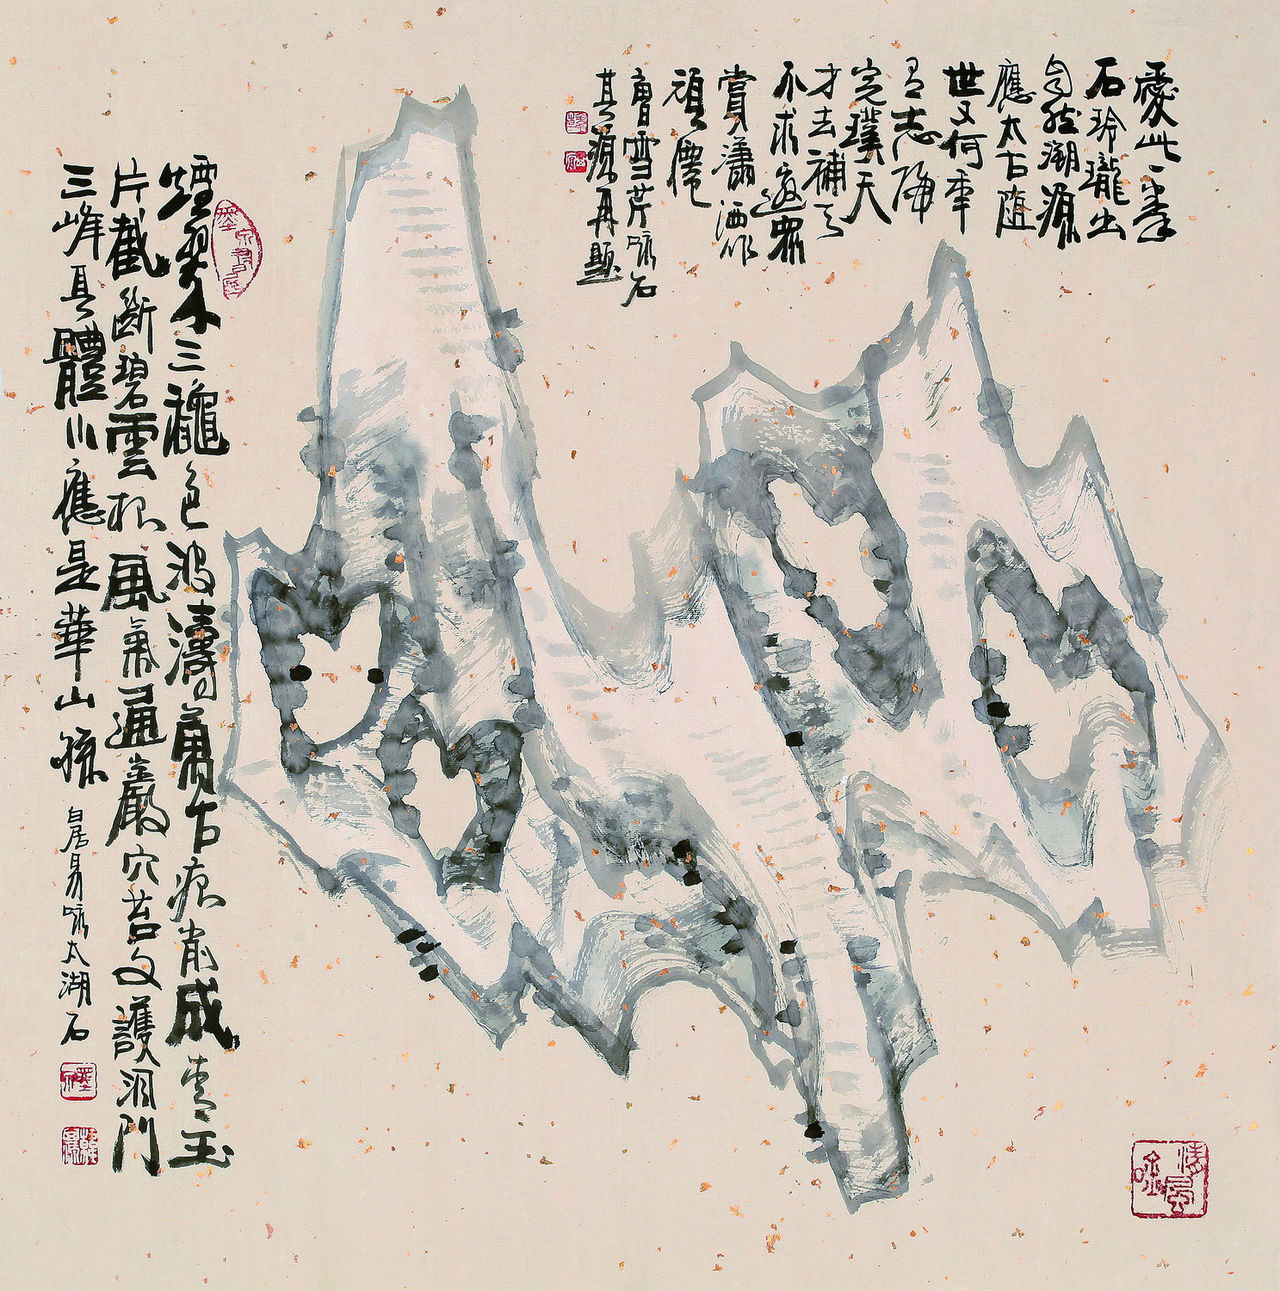 愛此一拳
石玲瓏出
自然溯源
應太古墮
世又何年
有志歸
完璞无
才去補天
不求邀眾
賞瀟洒作
頑僊
曹雪芹咏石
其源再題
煙翠三龝色波濤萬古痕削成青玉
片截斷碧雲根風氣通巖穴苔文護洞門
三峰具體小應是華山孫 白居易咏太湖石